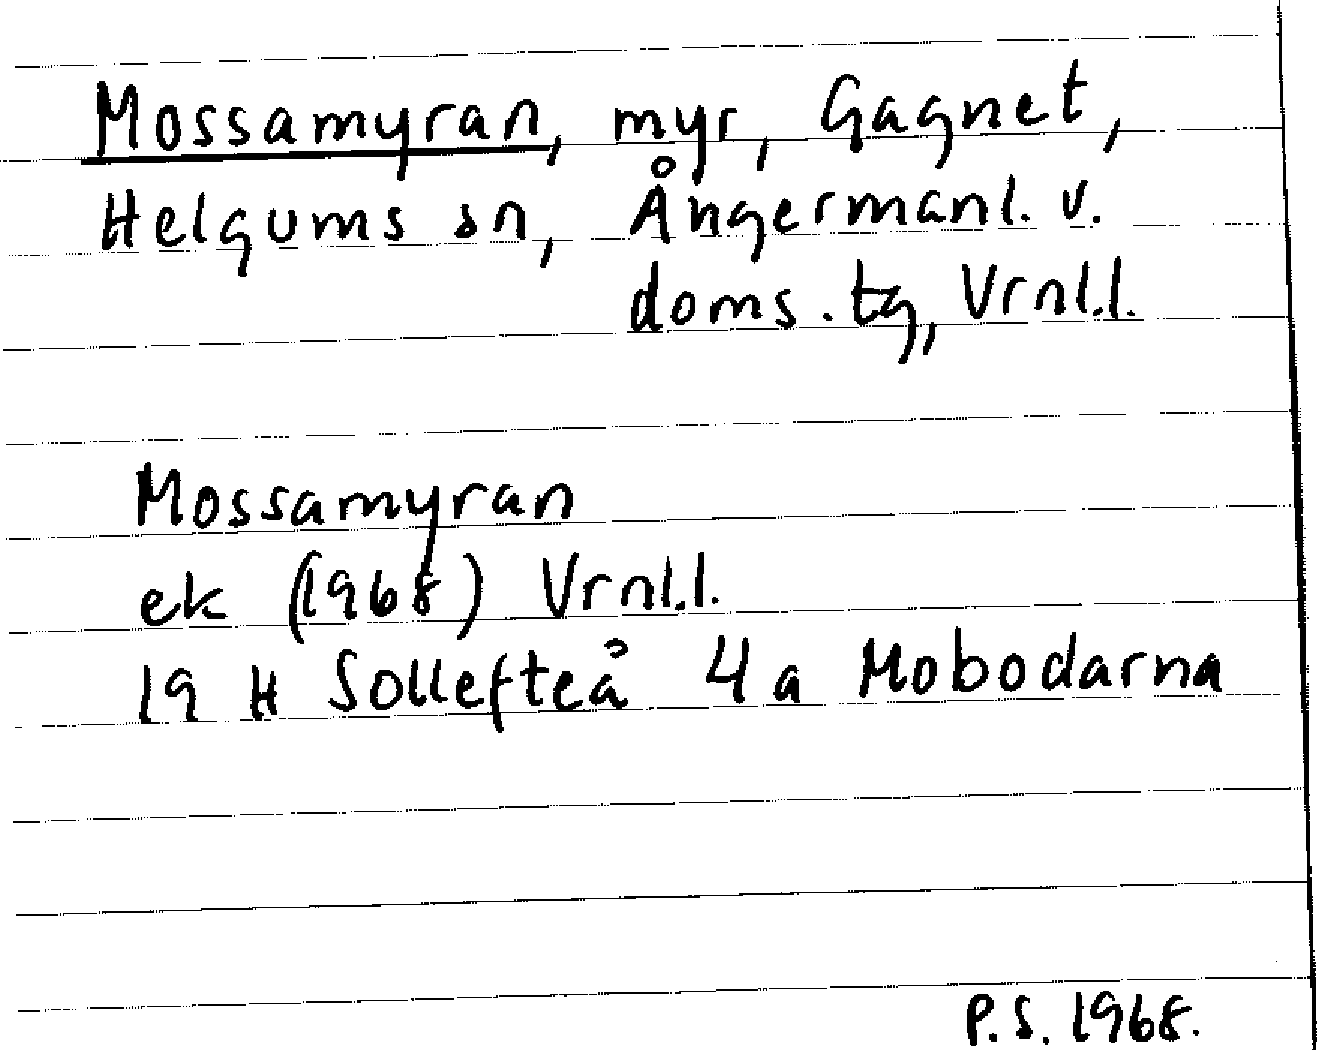 Mossamyran, myr, Gagnet,
Helgums sn, Ångermanl. v.
doms. tg, Vrnl.l.
Mossamyran
ek (1968) Vrnl.l.
19 H Sollefteå 4 a Mobodarna
P.S. 1968.